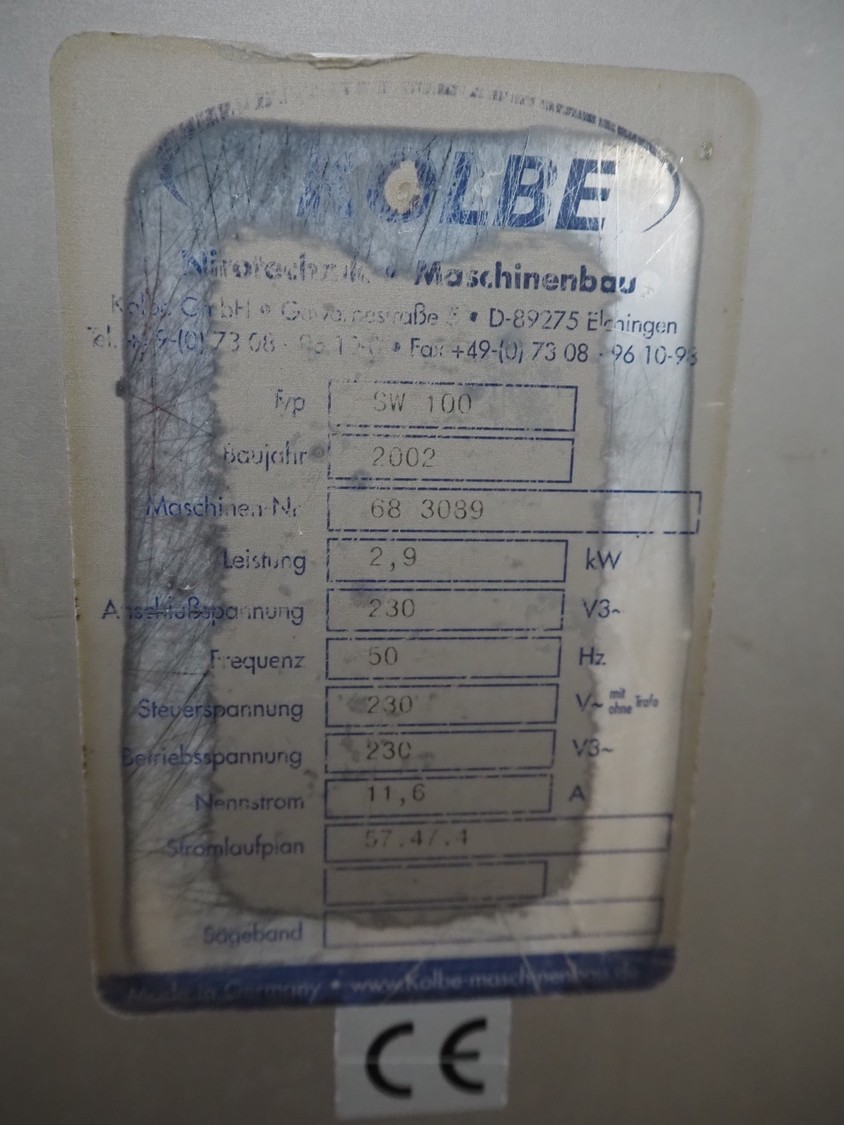 KOLBE
Nirotechnik • Maschinenbau
Kolbe GmbH • 5 • D-89275 Elchingen
Tel. +49-(0) 73 08 - 96 10-0 • Fax +49-(0) 73 08 - 96 10-98
Typ SW 100
Baujahr 2002
Maschinen-Nr. 68 3089
Leistung 2,9 kW
Anschlußspannung 230 V3~
Frequenz 50 Hz
Steuerspannung 230 V~ mit ohne Trafo
Betriebsspannung 230 V3~
Nennstrom 11,6 A
Stromlaufplan 57.47.4
Sägeband
Made in Germany • www.Kolbe-maschinenbau.de
CE